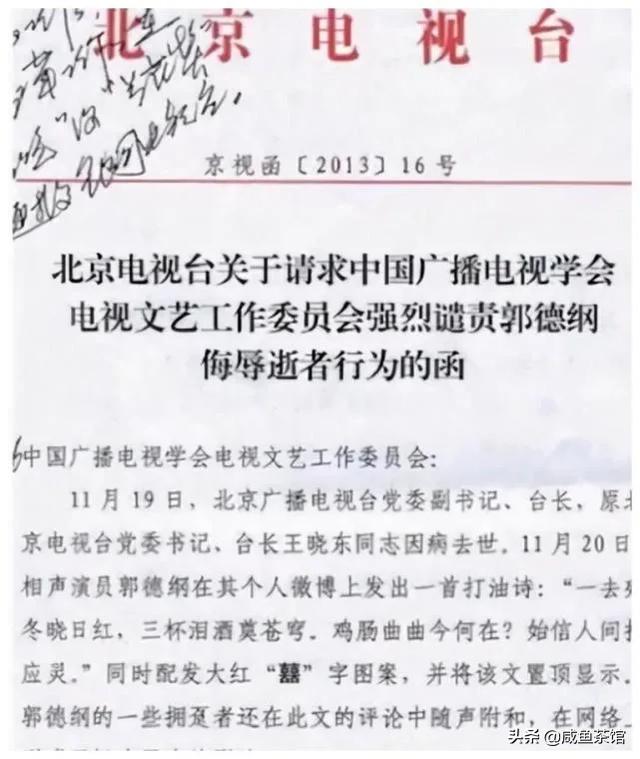 北京电视台
京视函〔2013〕16号
北京电视台关于请求中国广播电视学会
电视文艺工作委员会强烈谴责郭德纲
侮辱逝者行为的函
中国广播电视学会电视文艺工作委员会：
11月19日，北京广播电视台党委副书记、台长，原北
京电视台党委书记、台长王晓东同志因病去世。11月20日
相声演员郭德纲在其个人微博上发出一首打油诗：“一去
冬晓日红，三杯泪酒奠苍穹。鸡肠曲曲今何在？始信人间
应灵。”同时配发大红“囍”字图案，并将该文置顶显示。
郭德纲的一些拥趸者还在此文的评论中随声附和，在网络
头条 @咸鱼茶馆